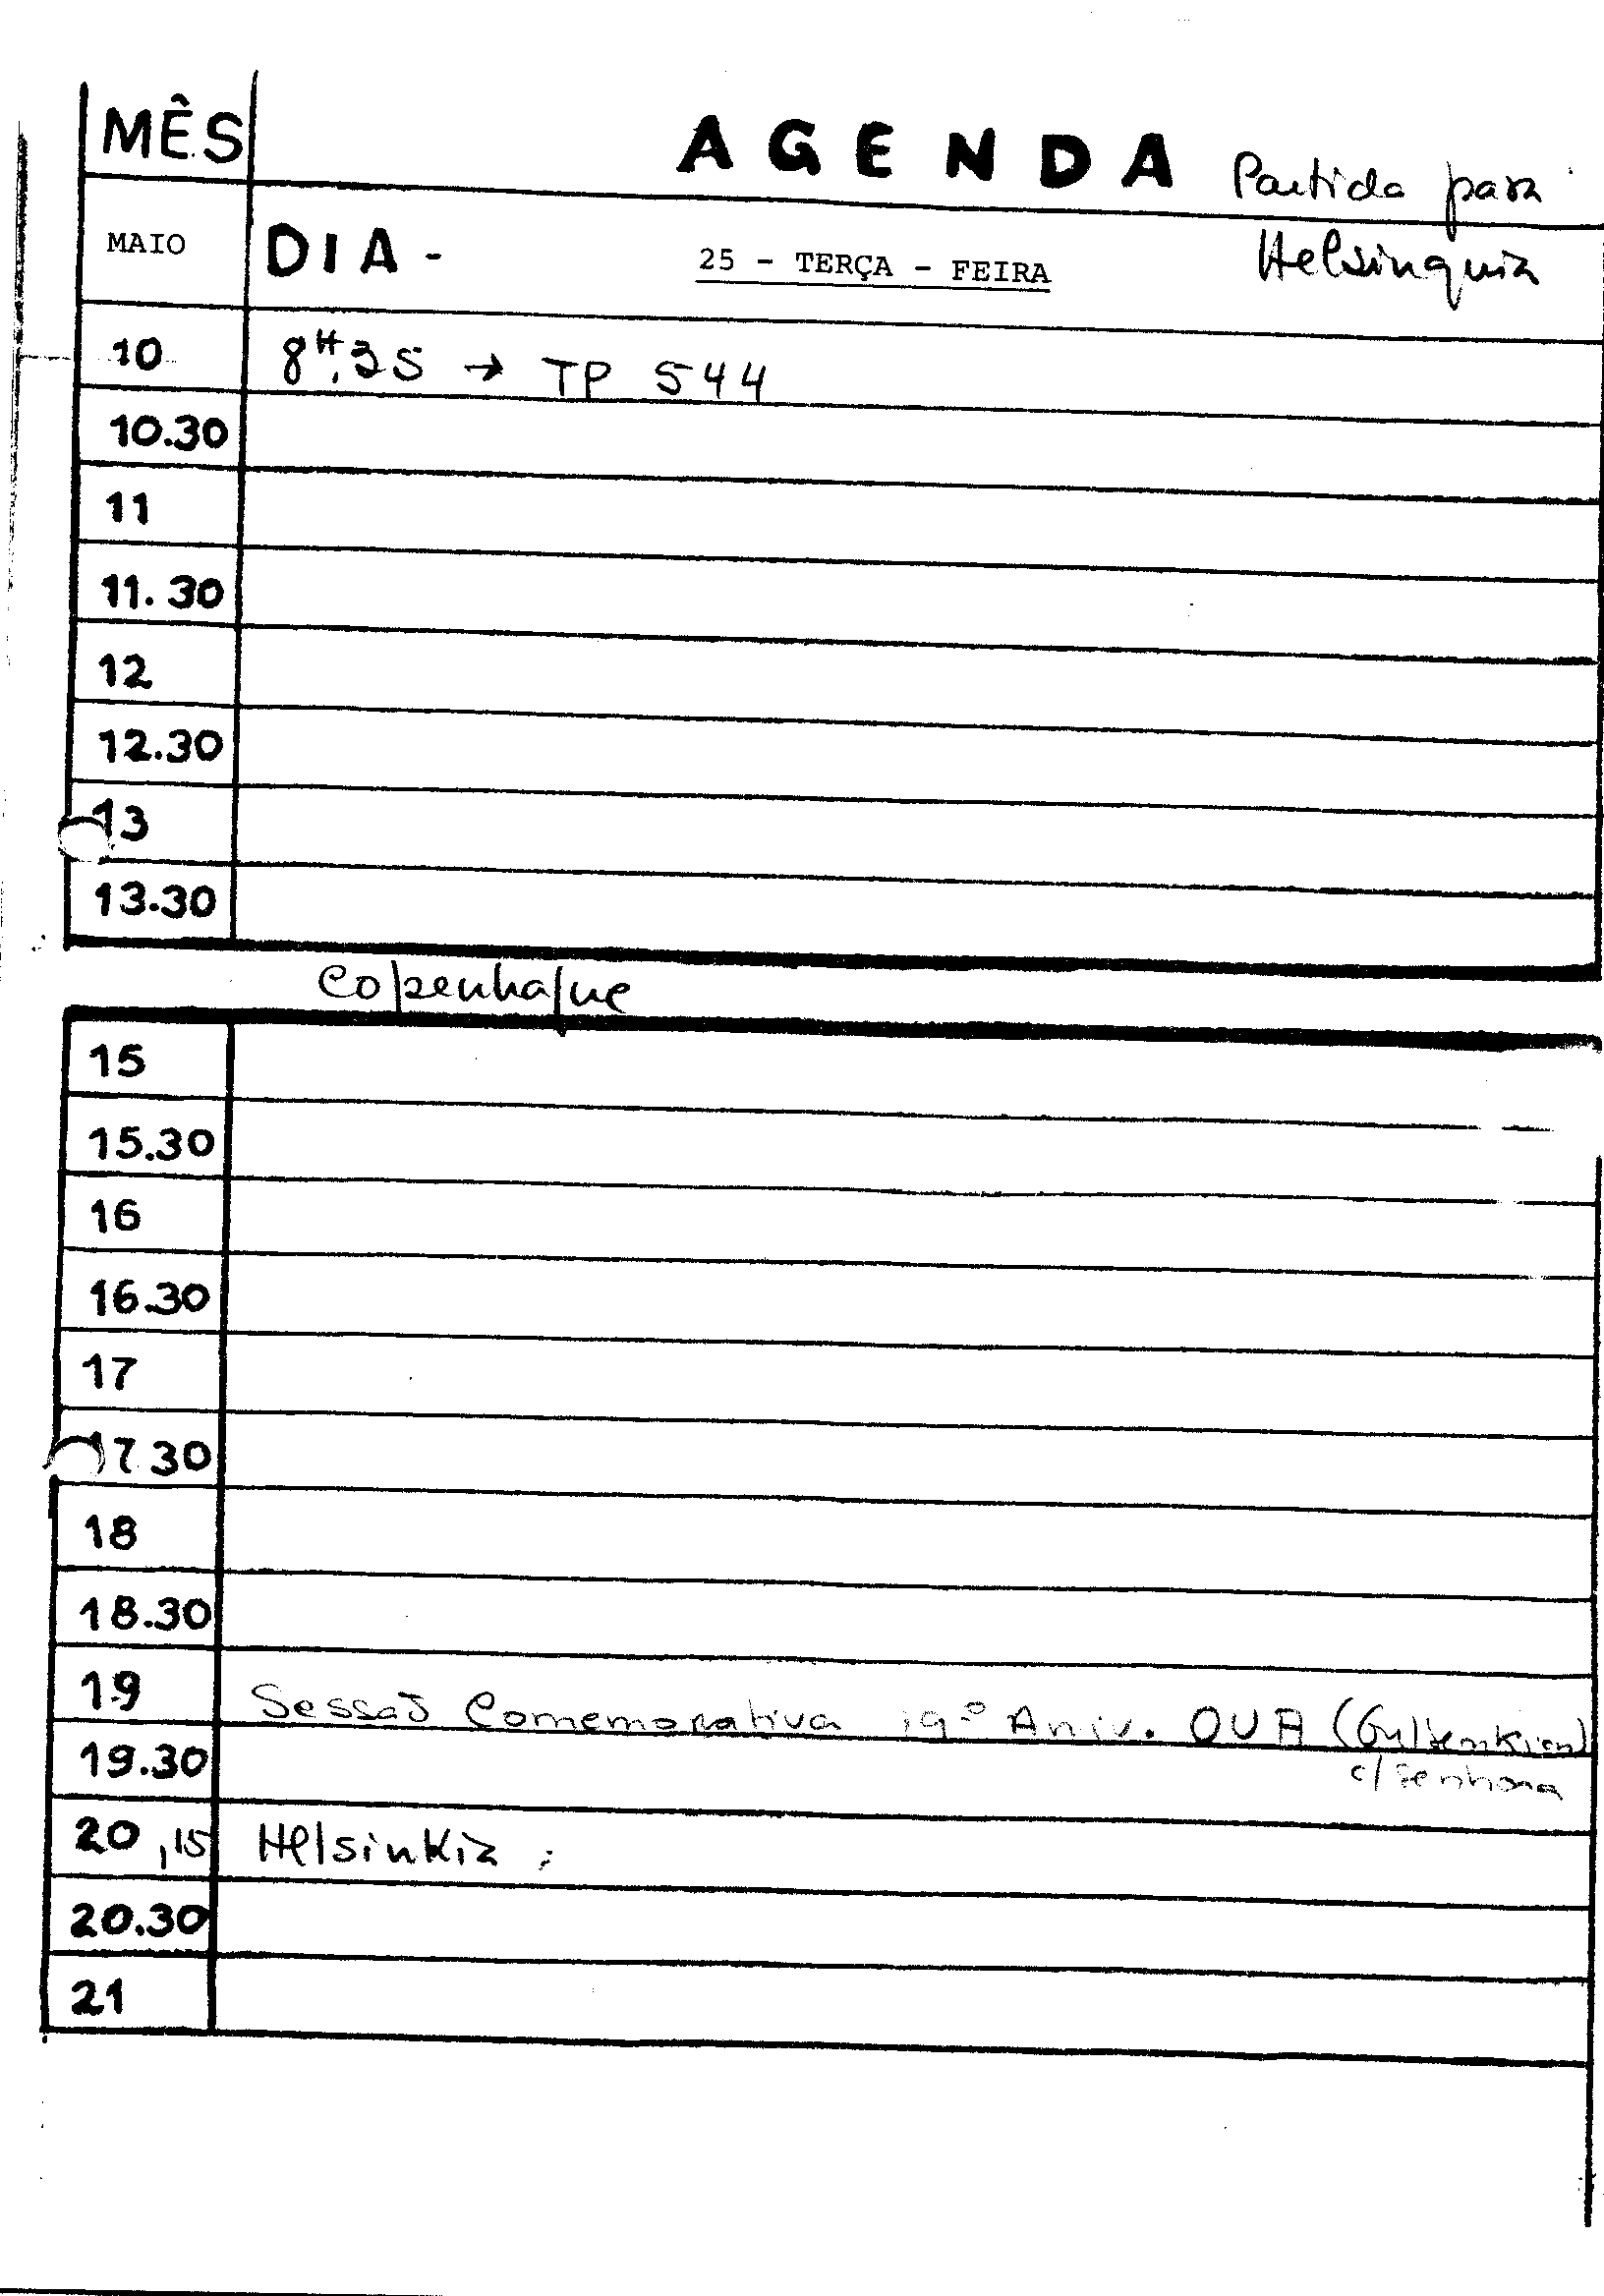 MÊS AGENDA Partida para
MAIO DIA - 25 - TERÇA - FEIRA Helsinquia
10 8H.35 → TP 544
10.30
11
11.30
12
12.30
13
13.30
Copenhague
15
15.30
16
16.30
17
17.30
18
18.30
19 Sessão Comemorativa 19º Aniv. OUA (Gulbenkian)
19.30 c/senhora
20,15 Helsinkia
20.30
21